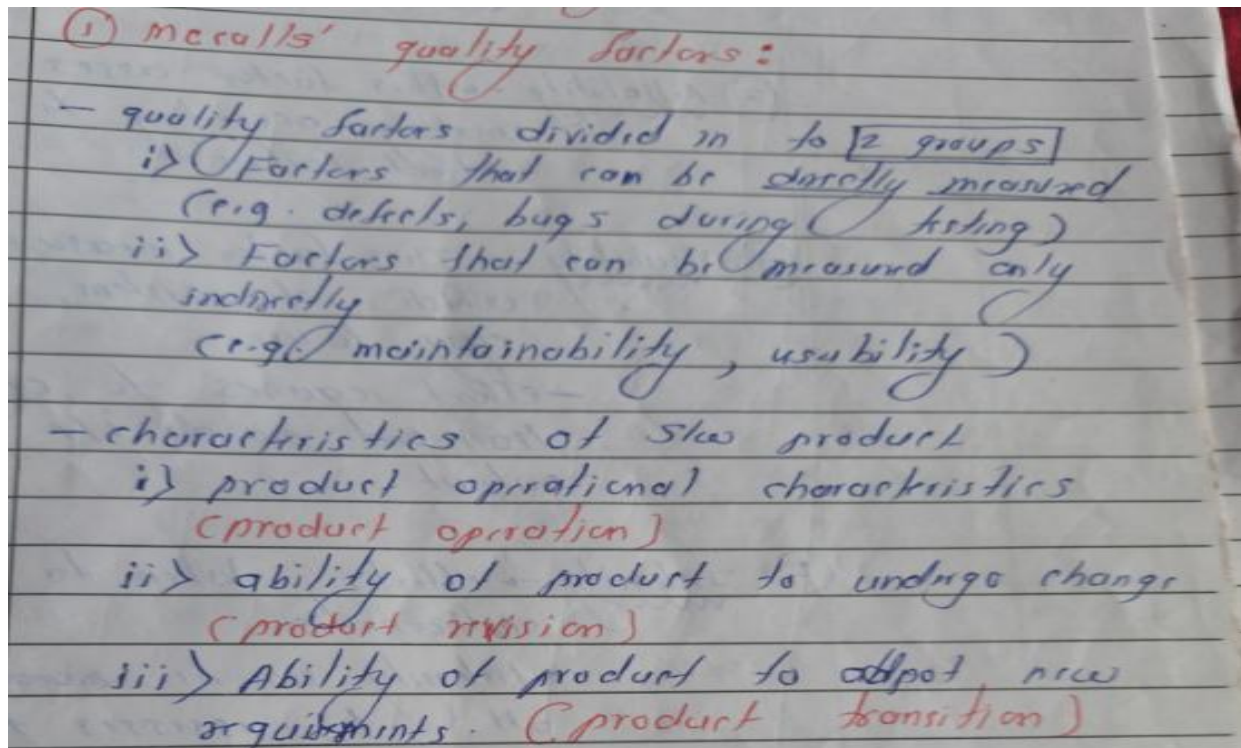 ① mccalls' quality factors:
- quality factors divided in to 2 groups
i> Factors that can be directly measured
(e.g. defects, bugs during testing)
ii> Factors that can be measured only
indirectly
(e.g. maintainability, usability)
- characteristics of S/w product
i> product operational characteristics
(product operation)
ii> ability of product to undergo change
(product revision)
iii> Ability of product to adpot new
requirments. (product transition)